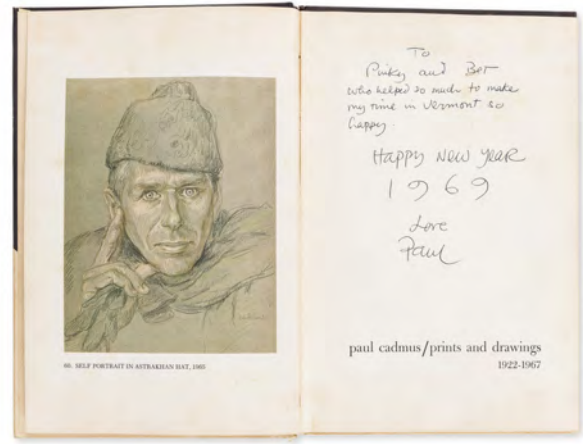 80. SELF PORTRAIT IN ASTRAKHAN HAT, 1965
To
Pinky and Bet
who helped so much to make
my time in Vermont so
happy.
Happy New Year
1969
Love
Paul
paul cadmus/prints and drawings
1922-1967